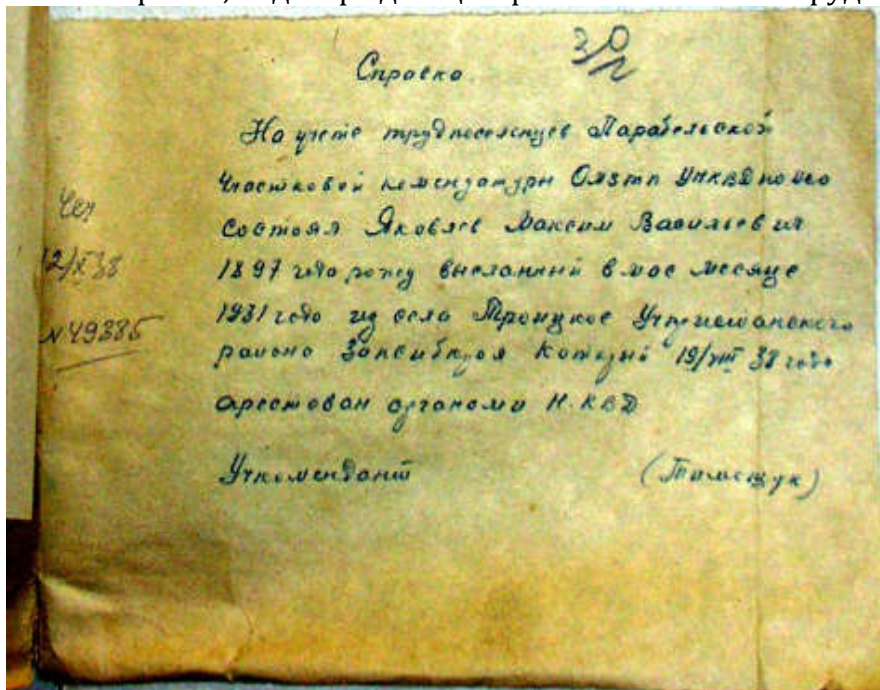 Справка
На учете трудпоселенцев Парабельской
Участковой комендатуры УНКВД по
состоял Яковлев Максим Васильевич
1897 года рожд высланный в мае месяце
1931 года из села Троицкое
района Запсибкрая который 19/VIII 38 года
арестован органами Н.КВД
Учкомендант (Тимощук)
12/X 38
N 49385